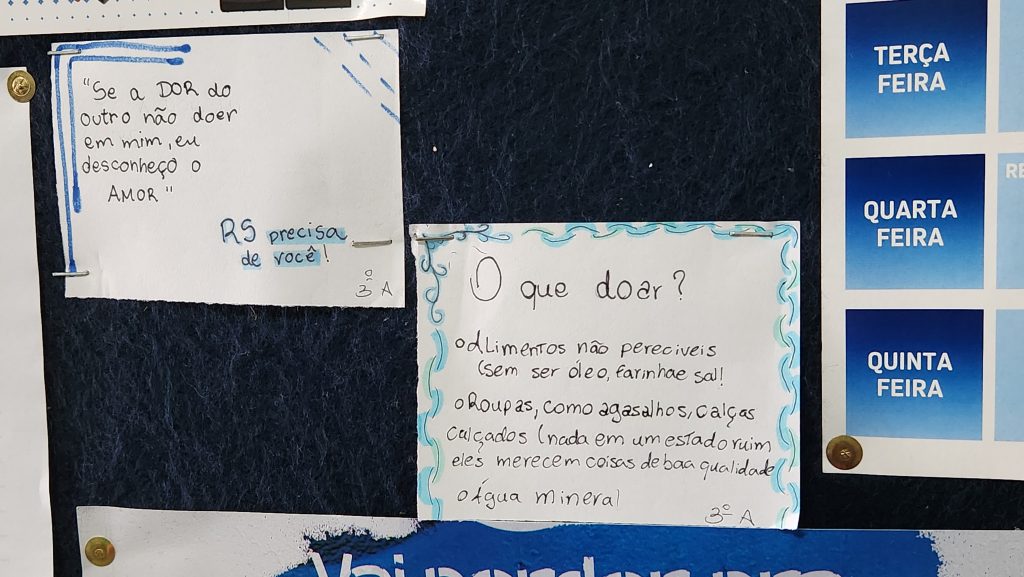 "Se a DOR do
outro não doer
em mim, eu
desconheço o
AMOR"
RS precisa
de você!
3º A
O que doar?
o ALimentos não pereciveis
(sem ser óleo, farinha e sal!
o Roupas, como agasalhos, calças
calçados (nada em um estado ruim
eles merecem coisas de boa qualidade
o Água mineral
3º A
TERÇA
FEIRA
QUARTA
FEIRA
QUINTA
FEIRA
RE